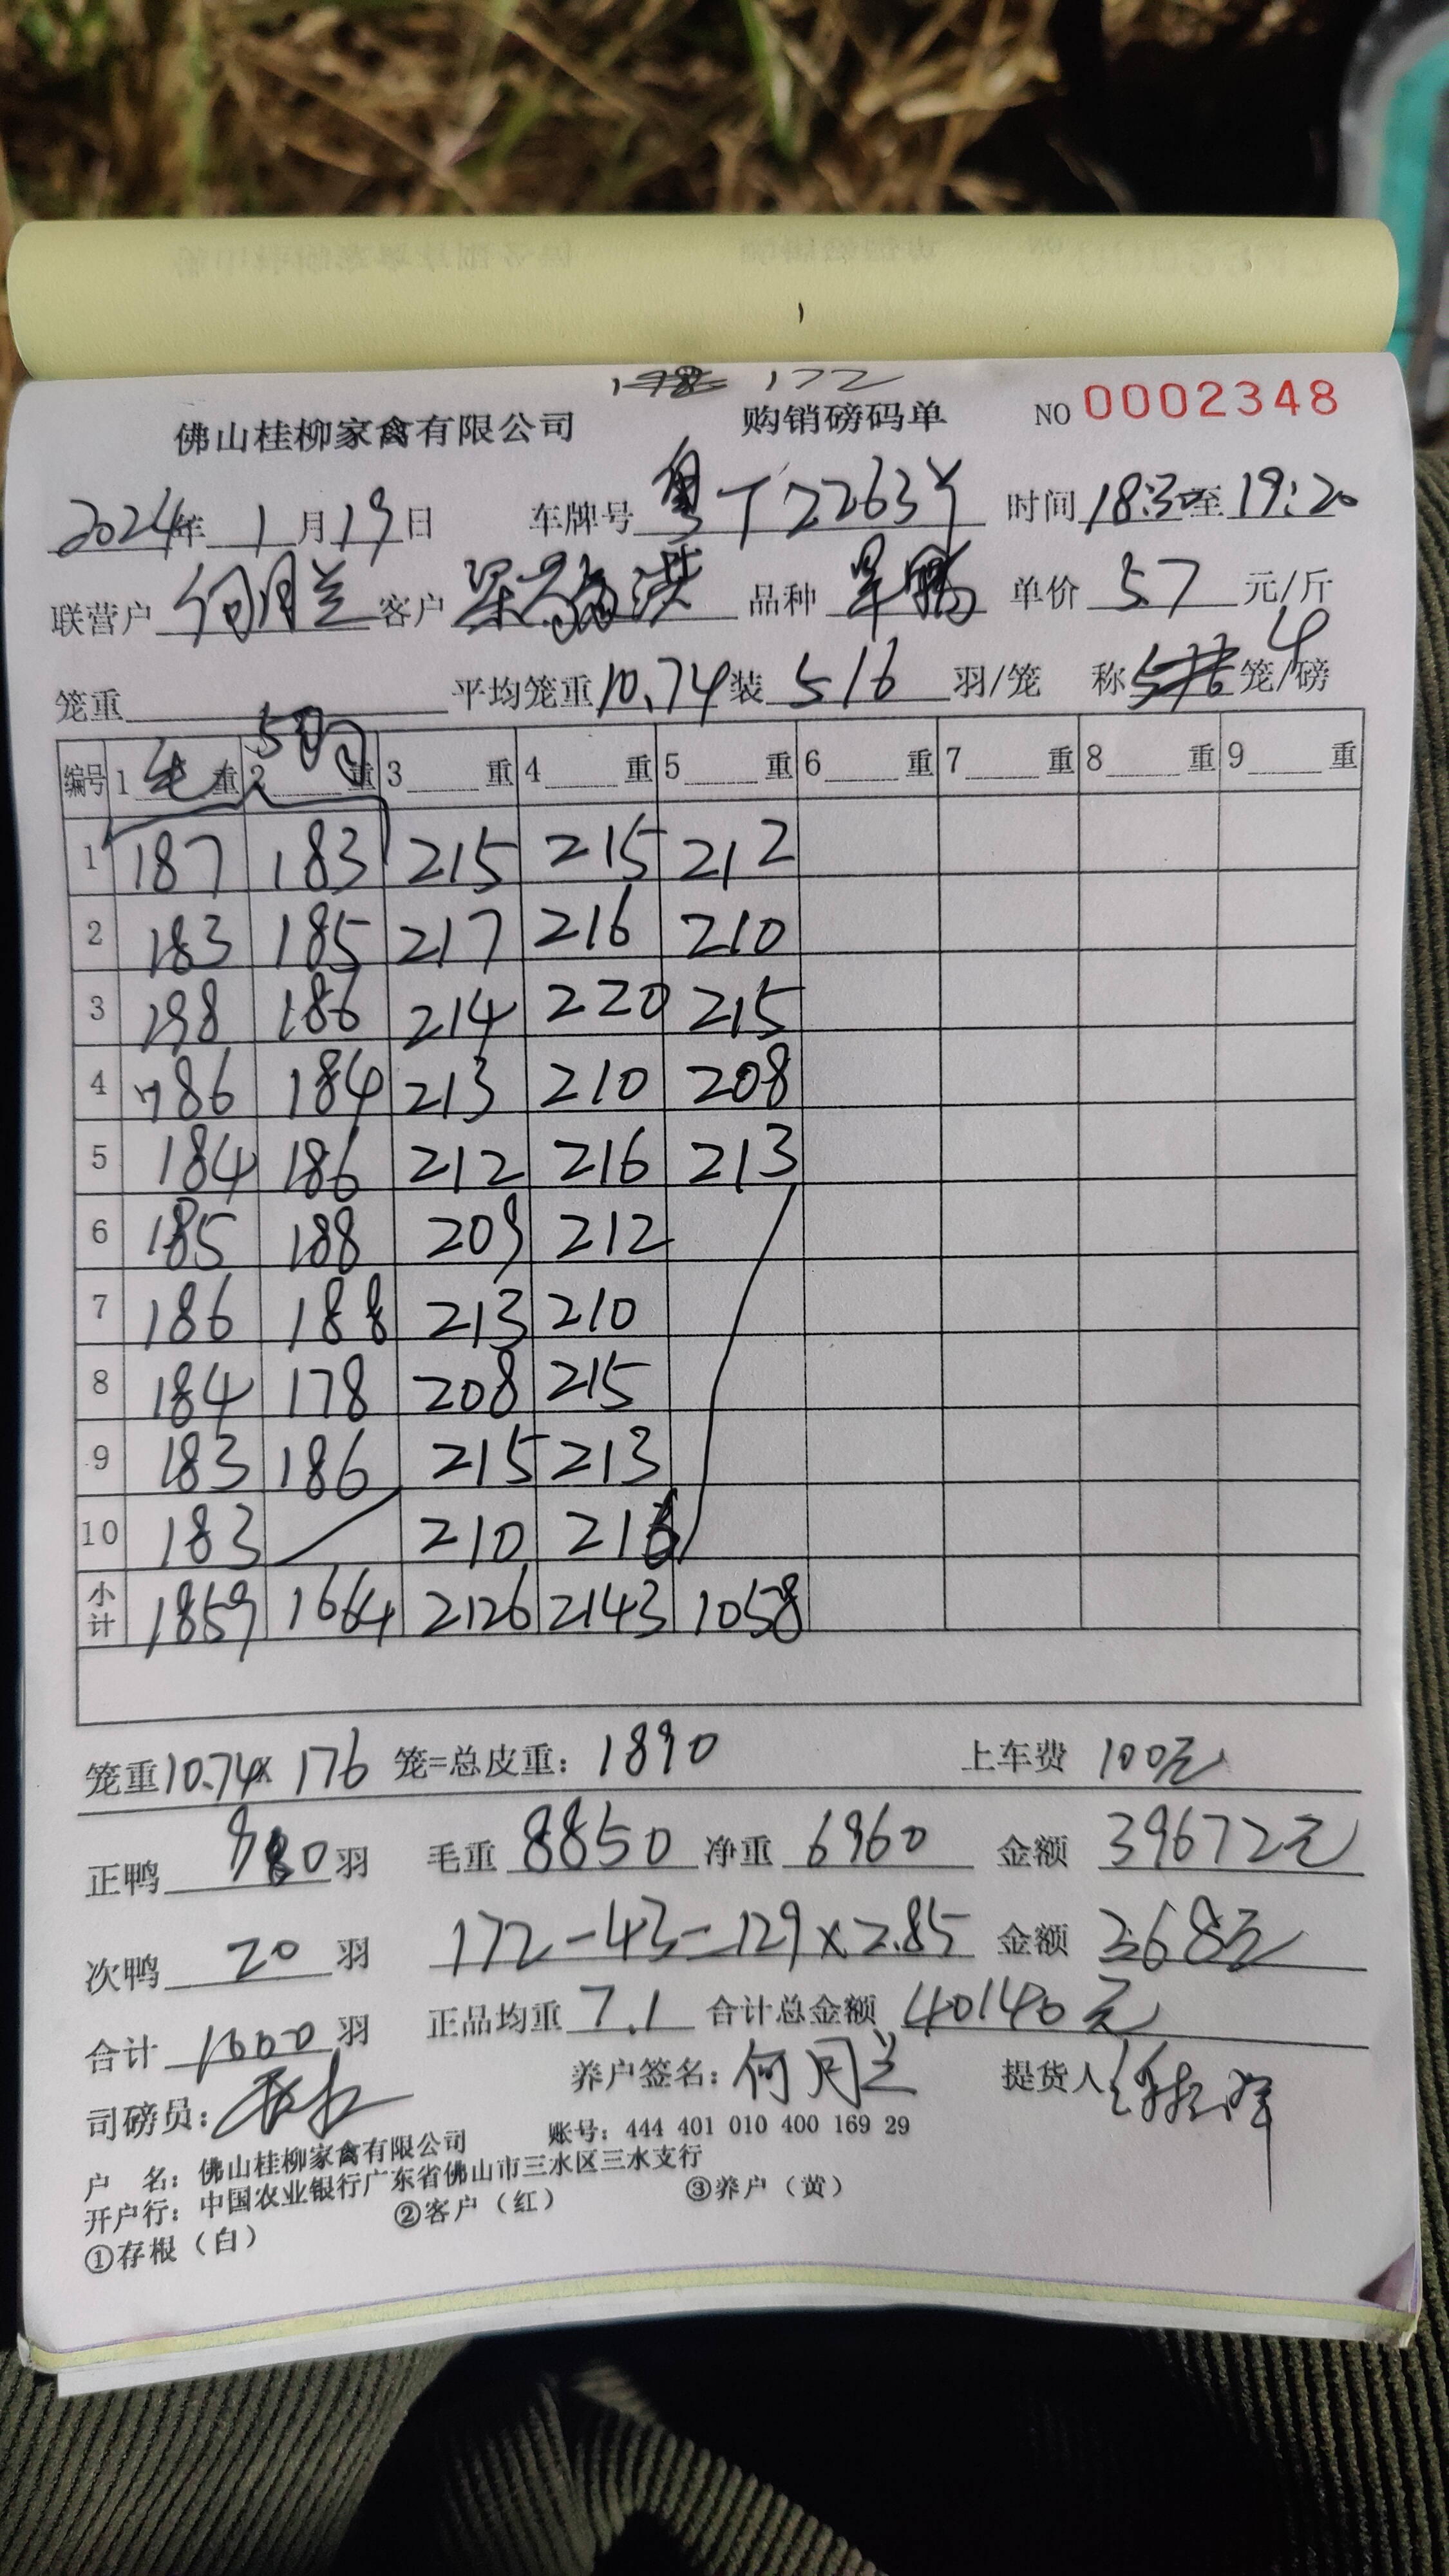 172
佛山桂柳家禽有限公司 购销磅码单 NO 0002348
2024年 1 月 19 日 车牌号 粤T2263Y 时间 18:30 至 19:20
联营户 何月兰 客户 梁 洪 品种 旱鸭 单价 5.7 元/斤
笼重 平均笼重 10.74 装 5/6 羽/笼 称 4 笼/磅
编号 1 重 2 重 3 重 4 重 5 重 6 重 7 重 8 重 9 重
1 187 183 215 215 212
2 183 185 217 216 210
3 198 186 214 220 215
4 186 184 213 210 208
5 184 186 212 216 213
6 185 188 209 212
7 186 188 213 210
8 184 178 208 215
9 183 186 215 213
10 183 210 216
小计 1859 1664 2126 2143 1058
笼重 10.74× 176 笼=总皮重: 1890 上车费 100元
正鸭 980 羽 毛重 8850 净重 6960 金额 39672元
次鸭 20 羽 172-43=129×2.85 金额 368元
合计 1000 羽 正品均重 7.1 合计总金额 40140元
司磅员: 养户签名: 何月兰 提货人
户 名: 佛山桂柳家禽有限公司 账号: 444 401 010 400 169 29
开户行: 中国农业银行广东省佛山市三水区三水支行
①存根（白） ②客户（红） ③养户（黄）